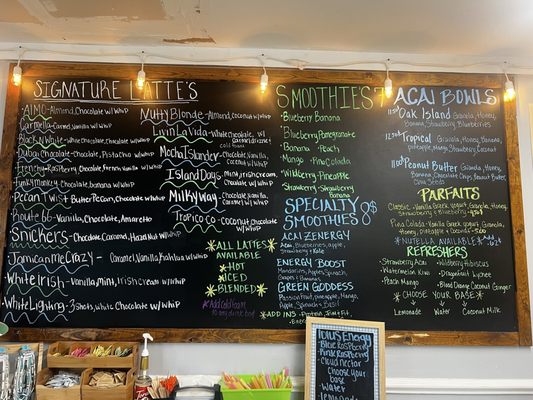 SIGNATURE LATTE'S
AIMO-Almond, Chocolate w/Whip
CarMella-Carmel, Vanilla w/Whip
Black N White-
Dubai Chocolate-Chocolate, Pistachio w/Whip
Frenchy-Raspberry Chocolate, french vanilla
Funky Monkey-Chocolate, banana w/Whip
Pecan Twist-Butter Pecan, Chocolate w/Whip
Route 66-Vanilla, Chocolate, Amaretto
Snickers-Chocolate, Caramel, Hazelnut w/Whip
Jamican me Crazy-Caramel, Vanilla, Kahlua w/Whip
White Irish-Vanilla, Mint, Irish Cream w/Whip
White Lighting-3 Shots, White Chocolate w/Whip
Nutty Blonde-Almond, Coconut w/Whip
Livin La Vida-White Chocolate,
Mocha Islander-Chocolate, Vanilla,
Island Days-Mint, Irish Cream
Milky Way-Chocolate, Vanilla,
Tropico-Coconut Chocolate
w/Whip
ALL LATTES
AVAILABLE
HOT
ICED
BLENDED
Add Cold Foam
to any drink
SMOOTHIE'S 7
Blueberry Banana
Blueberry Pomegranate
Banana Peach
Mango Pina Colada
Wildberry Pineapple
Strawberry Strawberry
Banana
SPECIALTY
SMOOTHIES 8
ACAI ZENERGY
Acai, Blueberries, apple,
Strawberry
ENERGY BOOST
Mandarins, Apples, Spinach,
Grapes & Bananas
GREEN GODDESS
Passion Fruit, pineapple, Mango,
Apple, Spinach
ADD INS-Protein,
ACAI BOWLS
Oak Island Granola, Honey,
Banana, Coconut, Chocolate
Strawberry, Blueberries
Tropical Granola, Honey, Banana
pineapple, Mango, Strawberry, Coconut
Peanut Butter Granola, Honey,
Banana, Coconut, Chocolate Chips, Peanut Butter
Chia Seeds
PARFAITS
Classic-Vanilla Greek yogurt, Granola, Honey,
Strawberry & Blueberry
Pina Colada-Vanilla Greek yogurt, Granola,
Honey, Pineapple & Coconut
NUTELLA AVAILABLE
REFRESHERS
Strawberry Acai Wildberry Hibiscus
Watermelon Kiwi Dragonfruit Lychee
Peach Mango Blood Orange Coconut Ginger
CHOOSE YOUR BASE
Lemonade Water Coconut Milk
Lotus Energy
-Blue Raspberry
-Pink Raspberry
Cloud nectar
choose your
base
Water
Lemonade